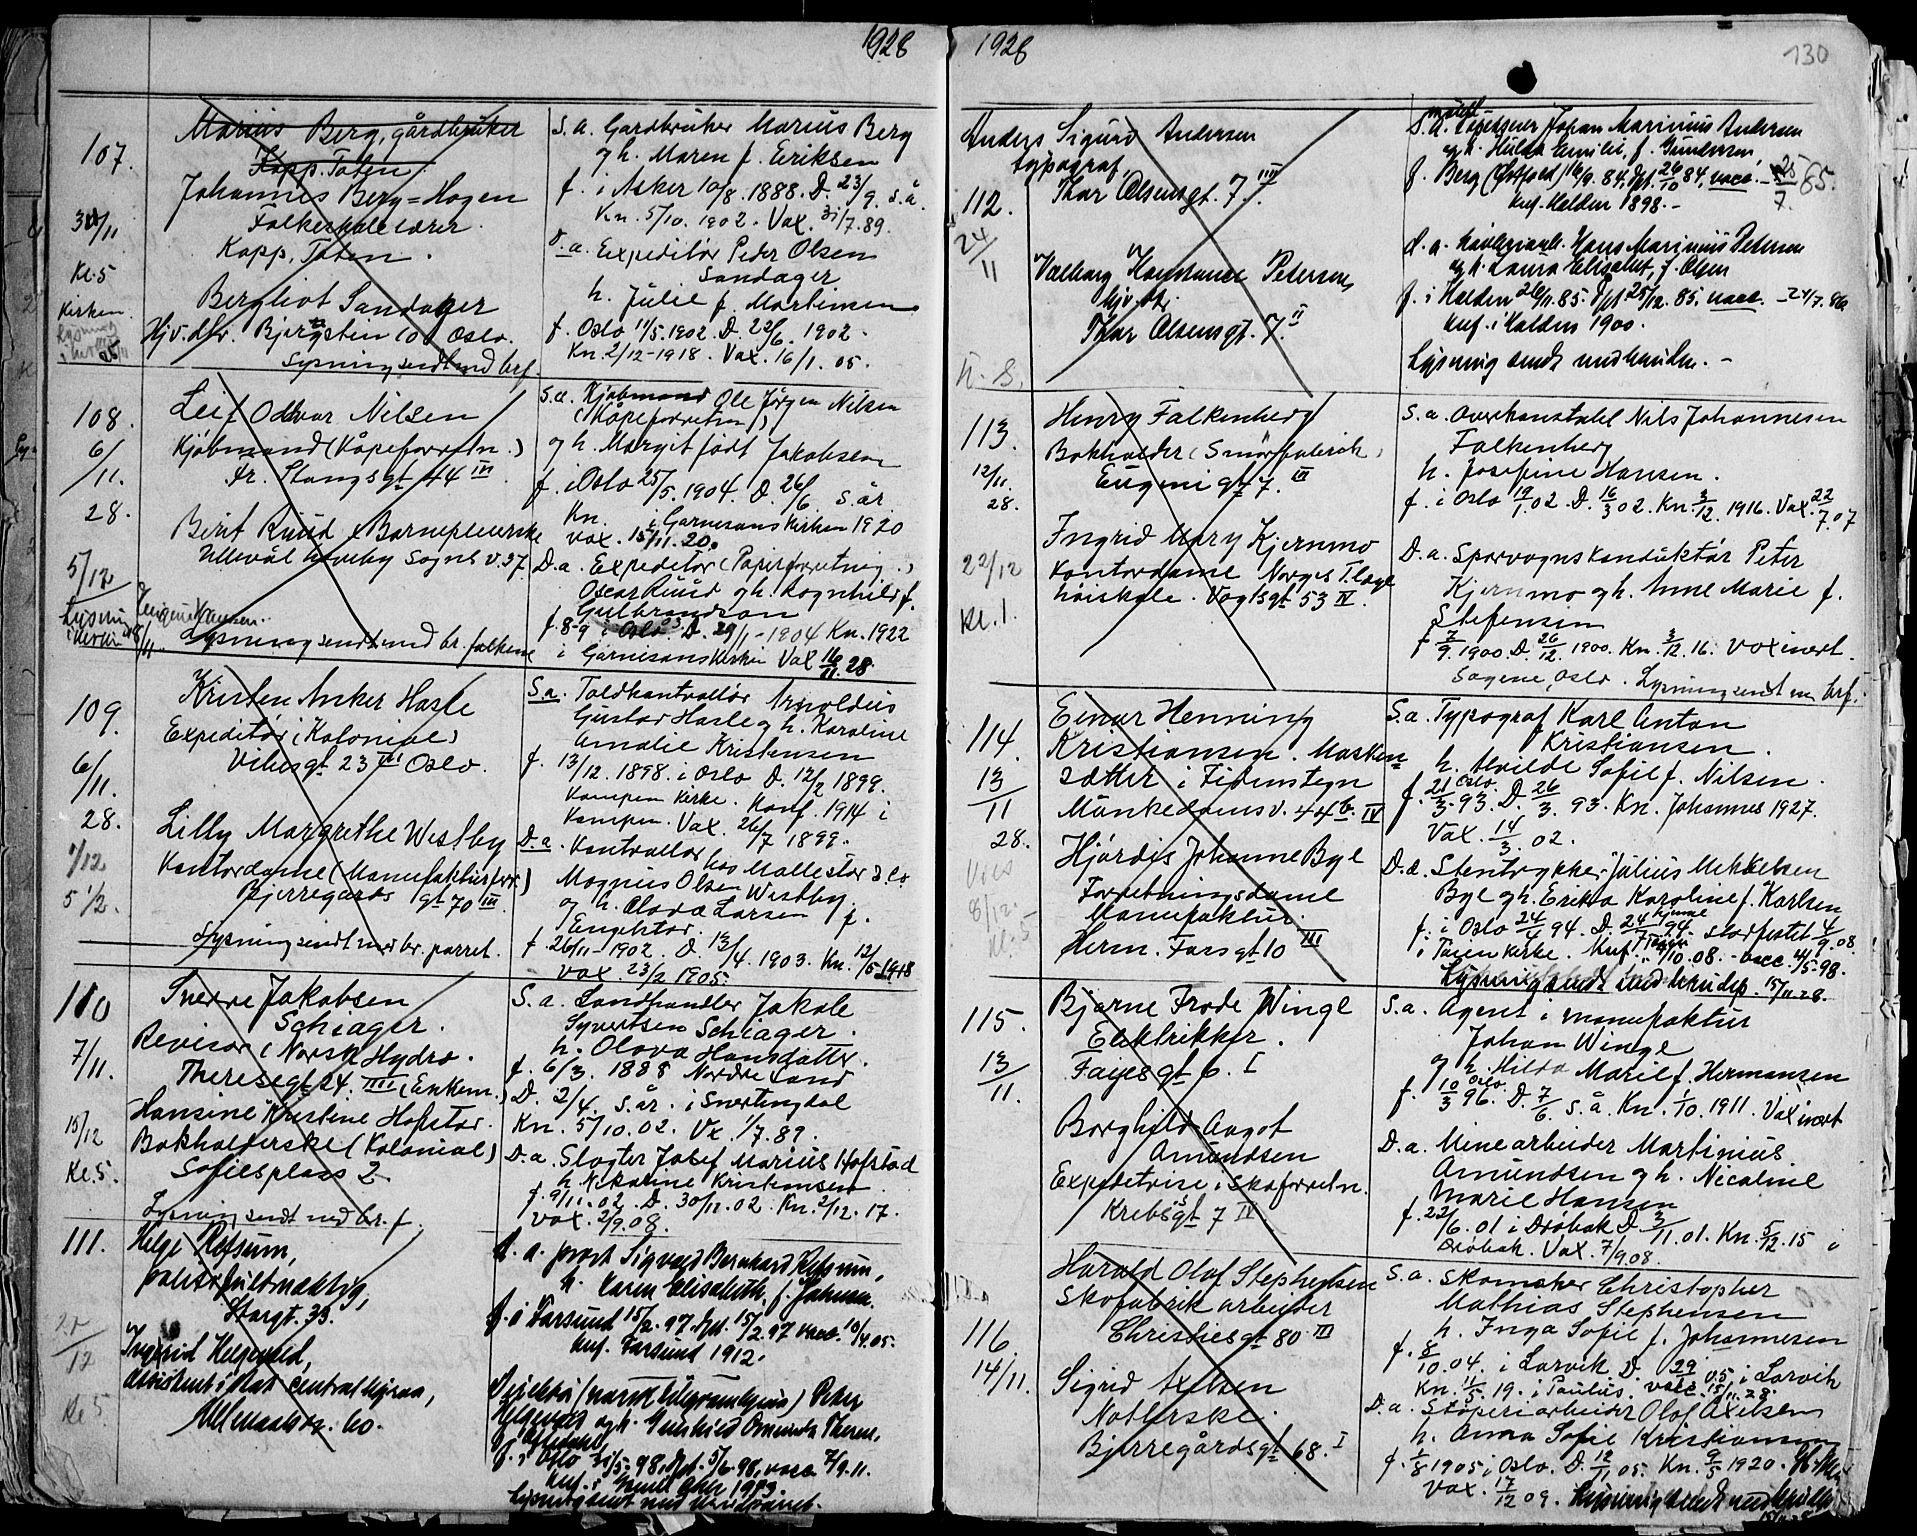 1928
107.
30/11
Kl. 5
Kirken.
Marius Berg, gårdbruker
Kapp. Toten
Johannes Berg=Hagen
Folkeskolelærer
Kapp, Toten.
Bergliot Sandager
Hjv. dtr. Bjergsten 100 Oslo.
Lysning sendt med brf.
S. a. Gardbruker Marius Berg
og h. Maren f. Eriksen
f. i Asker 10/8. 1888. D. 23/9. s. å.
Kn. 5/10. 1902. Vax. 31/7. 89.
D. a. Expeditør Peder Olsen
Sandager
h. Julie f. Mortensen
f. Oslo 11/5. 1902. D. 22/6. 1902.
Kn. 2/12-1918. Vax. 16/1. 05.
108.
6/11.
28.
5/12
Lysning
Leif Odvar Nilsen
Kjøbmand (Kåpeforretn.)
Dr. Stangsgt 44 IV
Birit Ruud, Barnepleierske
Ullevål haveby Sogns v. 37
Lysning sendt med br. folkene
S. a. Kjøbmand Ole Jørgen Nilsen
(Kåpeforretn.)
og h. Margit født Jakobsen
f. i Oslo 25/5. 1904. D. 26/6 s. år
Kn. i Garnisonskirken 1920
vax. 15/11. 20.
D. a. Expeditør (Papirforretning.)
Oscar Ruud og h. Ragnhild f.
Gulbrandson
f. 8-9 i Oslo. D. 29/1-1904 Kn. 1922
i Garnisonskirken Vax 16/11. 28
109.
6/11.
28.
5 1/2.
Kristen Anker Hasle
Expeditør (Kolonial)
Vibesgt 23 III Oslo.
Lilly Margrethe Westby
Kontordame (Manufakturforr.)
Bjerregards gt 70 III.
Lysning sendt med br. parret.
S. a. Toldkontrollør Arnoldus
Gustav Hasle og h. Karoline
Amalie Kristensen
f. 13/12. 1898. i Oslo D. 12/2 1899.
Kampen Kirke. Konf. 1914 i
Kampen. Vax. 26/7 1899.
D. a. Kontrollør hos Møllestør & Co
Magnus Olsen Westby
og h. Olava Larsen f.
Engelstør.
f 26/11-1902. D 13/4. 1903. Kn. 12/5 1918
vax 23/2 1905.
110
7/11.
15/12
Kl. 5.
Sverre Jakobsen
Schiager.
Revisor (Norsk Hydro.
Theresegt 24. IIII (Enkem.)
Hansine Kristine Hofstar.
Bokholderske (Kolonial)
Sofiesplass 2
Lysning sendt med br. f.
S. a. Landhandler Jakob
Syvertsen Schiager.
h. Olava Hansdatter.
f. 6/3. 1888 Nordre Land
D. 2/4. s. år. i Snertingdal
Kn. 5/10. 02. Vx. 1/7. 89.
D. a. Slagter Josef Marius Hofstad
h Nikoline Kristiansen
f. 9/11. 02. D. 30/11. 02. Kn. 2/12. 17.
vax. 2/9. 08.
111.
Kl 5.
Helge Refsum,
politifuldmektig,
Storgt. 39.
Ingrid Helgesed,
Assistent i Stat. centralbyraa,
Ullevaalsv. 60.
S. a. prost Sigvard Bernhard Refsum,
h. Karen Elisabeth, f. Johnsen.
f. i Farsund 15/2. 97. dpt. 15/2. 97 vacc. 10/4. 05.
knf. Farsund 1912.
f. i Oslo 31/5. 98, dpt. 5/6. 98, vacc. 7/9. 11.
1928
130
112.
24/11
Anders Sigurd Andersen
typograf,
Thor Olsensgt. 7 IIII.
Valborg Konstance Petersen,
hjv. dt.
Thor Olsensgt. 7. II
S. a. Johan Marinius Andersen
og h. Hulda Emilie, f. Gundersen,
f. Berg (Østfold) 16/9. 84, dpt. 26/10 84, vacc. – 25/7. 85.
knf. Halden 1898. –
D. a. Hans Marinius Petersen
og h. Laura Elisabet, f. Olsen
f. i Halden 26/11. 85. dpt 25/12. 85. vacc. – 24/7. 86
knf. i Halden 1900.
Lysning sendt med
113.
12/11.
28.
22/12
Kl. 1.
Henry Falkenberg
Bokholder (Smørfabrik)
Eugeni gt 7. III
Ingrid Mary Kjernmo
Kontordame Norges T. læge
høiskole. Vogtsgt 53 IV.
S. a. Overkonstabel Nils Johannesen
Falkenberg
h. Josefine Hansen.
f. i Oslo 19/1. 02. D. 16/3 02. Kn. 3/12. 1916. Vax. 22/7. 07
D. a. Sporvognskonduktør Peter
Kjernmo og h. Anne Marie f.
Stefensen
f 7/9. 1900. D. 26/12. 1900. Kn. 3/12. 16. vax inert.
Sagene, Oslo. Lysning sendt m brf.
114.
13/11
28.
8/12.
Kl. 5
Einar Henning
Kristiansen. Maskin=
sætter i Tidenstegn
Munkedamsv. 44 b. IV
Hjørdis Johanne Bye
Forretningsdame
Manufaktur.
Herm. Fossgt 10 III
S. a. Typograf Karl Anton
Kristiansen.
h. Alvilde Sofie f. Nilsen.
f. 21/3. 93. Oslo. D. 26/3. 93. Kn. Johannes 1927.
Vax. 14/3. 02.
D. a. Stentrykker Julius Mikkelsen
Bye og h. Erika Karoline f. Karlsen
f. i Oslo 24/4 94. D. 24/7 94. hjemme stadfestet 4/9. 08
i Tøien Kirke. Knf. Tøien 4/10. 08. – vacc. 4/5-98.
15/11-28.
115.
13/11.
Bjarne Frode Winge
Elektrikker.
Fayes gt 6. I
Borghild Aagot
Amundsen
Expeditrise i Skoforretn.
Krebs's gt 7 IV
S. a. Agent i manufaktur
Johan Winge
og h. Hilda Marie f. Hermansen
f. 10/3 96. Oslo. D. 7/6. s. å. Kn. 1/10. 1911. Vax inert
D. a. Minearbeider Martinius
Amundsen og h. Nicoline
Marie Hansen
f. 22/6. 01 i Drøbak D. 3/11. 01. Kn. 5/12. 15 i
Drøbak. Vax. 7/9 08.
116.
14/11.
Harald Olaf Stephensen
Skofabrikarbeider
Christiesgt 80 III
Sigrid Axelsen
Notterske.
Bjerregårdsgt 68. I
S. a. Skomaker Christopher
Mathias Stephensen
h. Inga Sofie f. Johannesen
f. 8/10. 04. i Larvik D. 29/1 05. i Larvik
Kn. 11/5. 19. i Paulus. vacc. 15/11. 28.
D. a. Støperiarbeider Olaf Axelsen
h. Anna Sofie Kristiansen
f. 1/8 1905 i Oslo. D. 12/11 05. Kn. 9/5 1920.
Vax. 17/12 09.